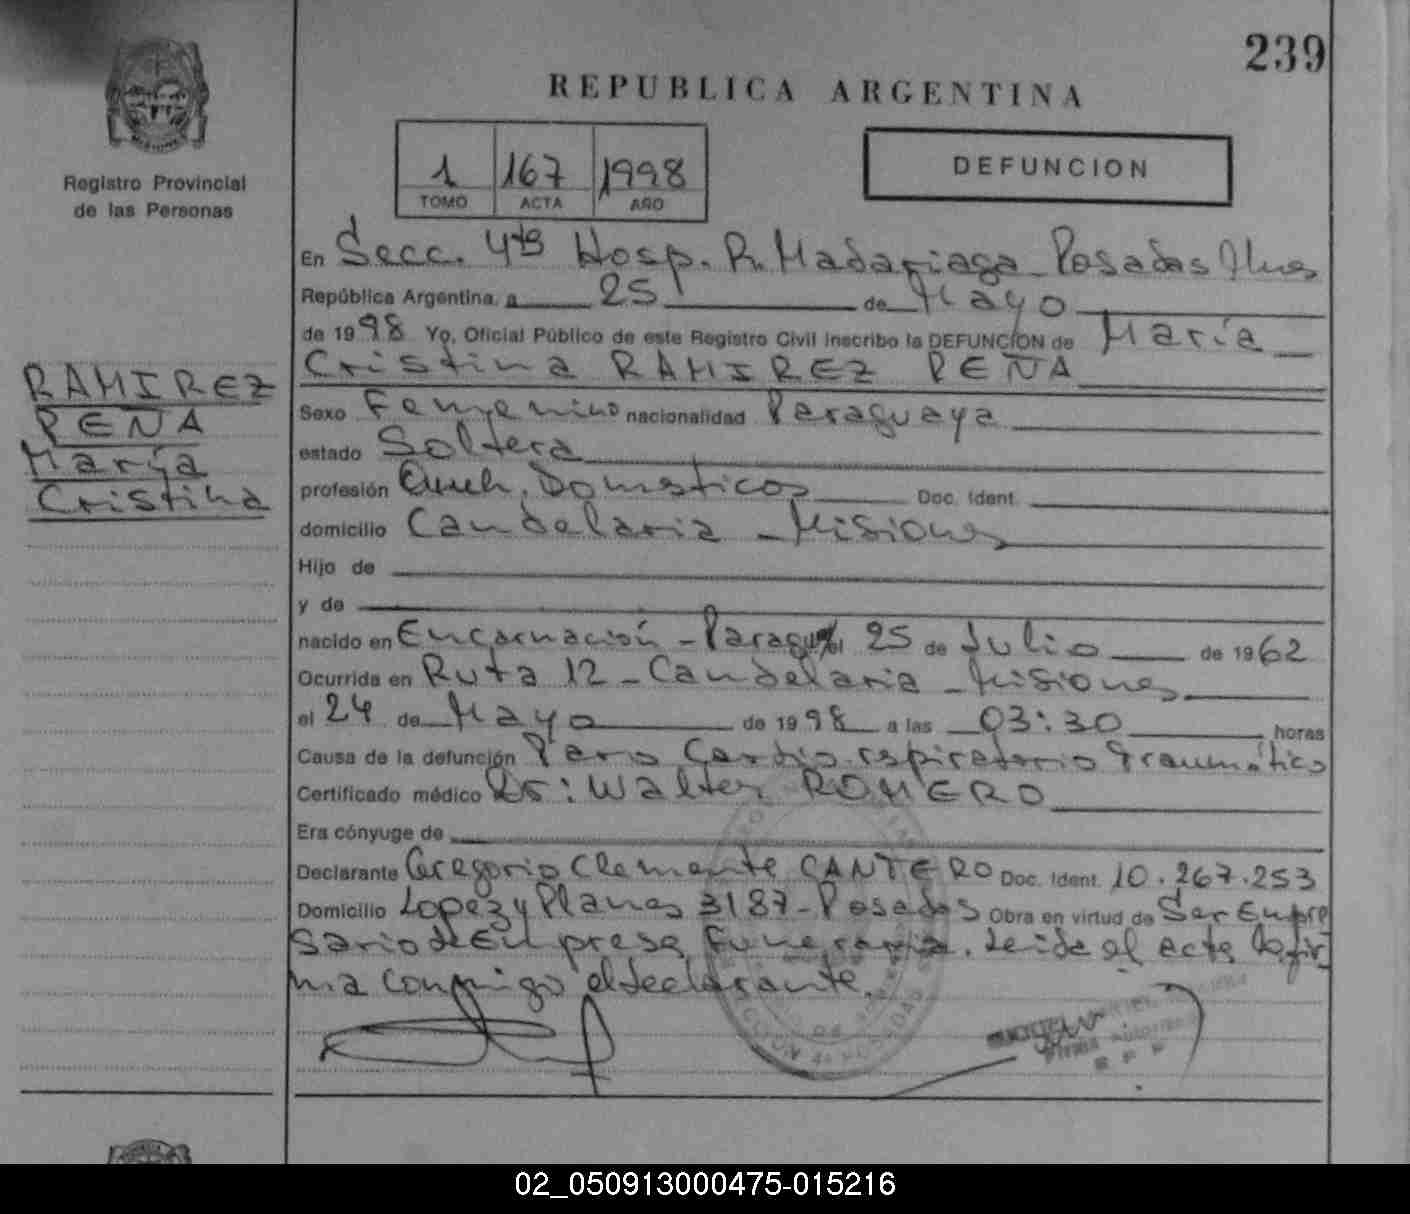 239
REPUBLICA ARGENTINA
Registro Provincial
de las Personas
1 167 1998
TOMO ACTA AÑO
DEFUNCION
En Secc. 4ta Hosp. R. Madariaga Posadas Mnes
República Argentina, a 25 de Mayo
de 1998 Yo, Oficial Público de este Registro Civil inscribo la DEFUNCION de María
Cristina RAMIREZ PEÑA
RAMIREZ
PEÑA
María
Cristina
Sexo Femenino nacionalidad Paraguaya
estado Soltera
profesión Domesticos Doc. Ident.
domicilio Candelaria - Misiones
Hijo de
y de
nacido en Encarnación - Paraguay 25 de Julio de 1962
Ocurrida en Ruta 12 - Candelaria - Misiones
el 24 de Mayo de 1998 a las 03:30 horas
Causa de la defunción Paro Cardio respiratorio Traumático
Certificado médico Dr: Walter ROMERO
Era cónyuge de
Declarante Gregorio Clemente CANTERO Doc. Ident. 10.267.253
Domicilio Lopez y Planes 3187 - Posadas Obra en virtud de Ser Empre
sario de Empresa Funeraria. Leida el acta la fir
ma conmigo el declarante.
02_050913000475-015216